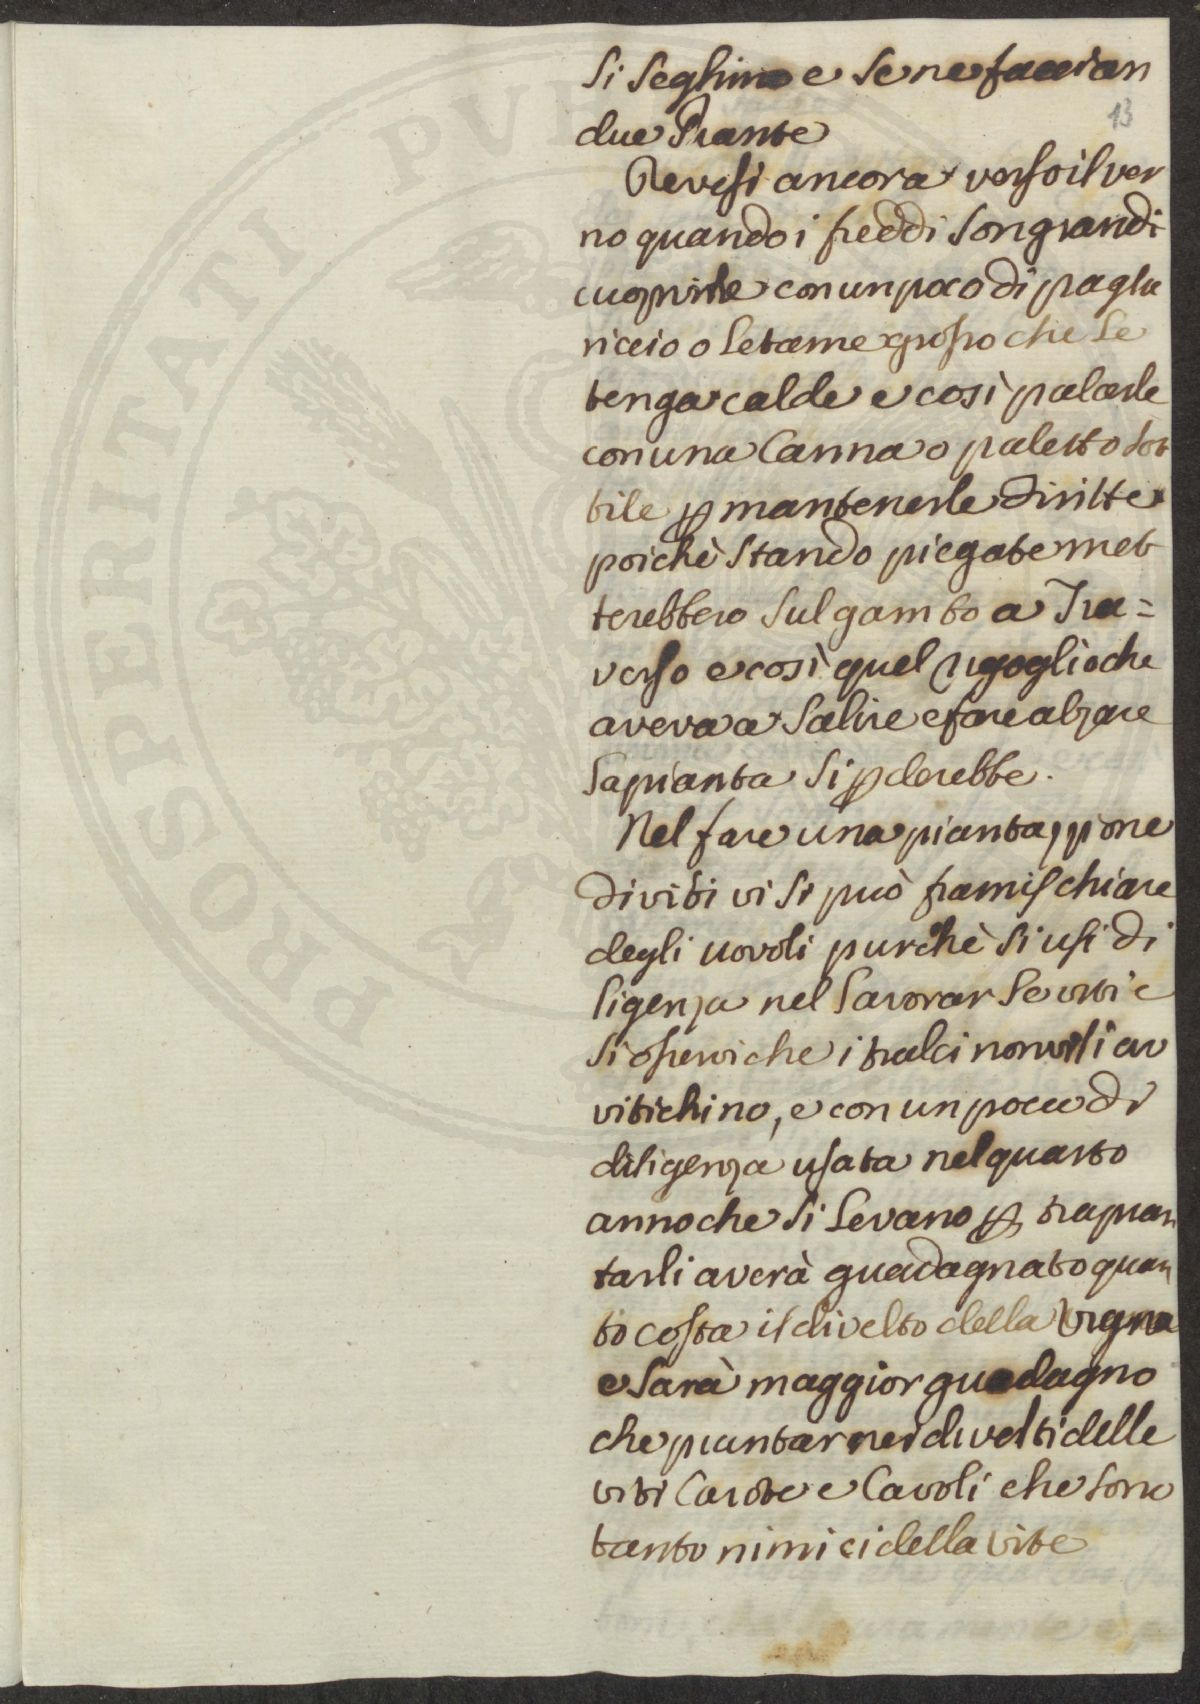 si seghino e se ne faccian
13
due Piante
Devesi ancora verso il ver
no quando i freddi son grandi
cuoprirle con un poco di pagla
riccio o letame grosso che le
tenga calde e così palarle
con una Canna o paletto sot
tile p mantenerle diritte
poichè stando piegate met
terebbero sul gambo a Tra=
verso e così quel rigoglio che
aveva a salire e fare alzare
la pianta si pderebbe.
Nel fare una piantazzione
di viti vi si può framischiare
degli uovoli purchè si usi di
ligenza nel lavorar le viti e
si osservi che i tralci non vi si av
vitichino, e con un poco di
diligenza usata nel quarto
anno che si levano p trapian
tarli averà guadagnato quan
to costa il divelto della Vigna
e sarà maggior guadagno
che piantar nei divelti delle
viti Carote e Cavoli che sono
tanto nimici della vite
PROSPERITATI PUB